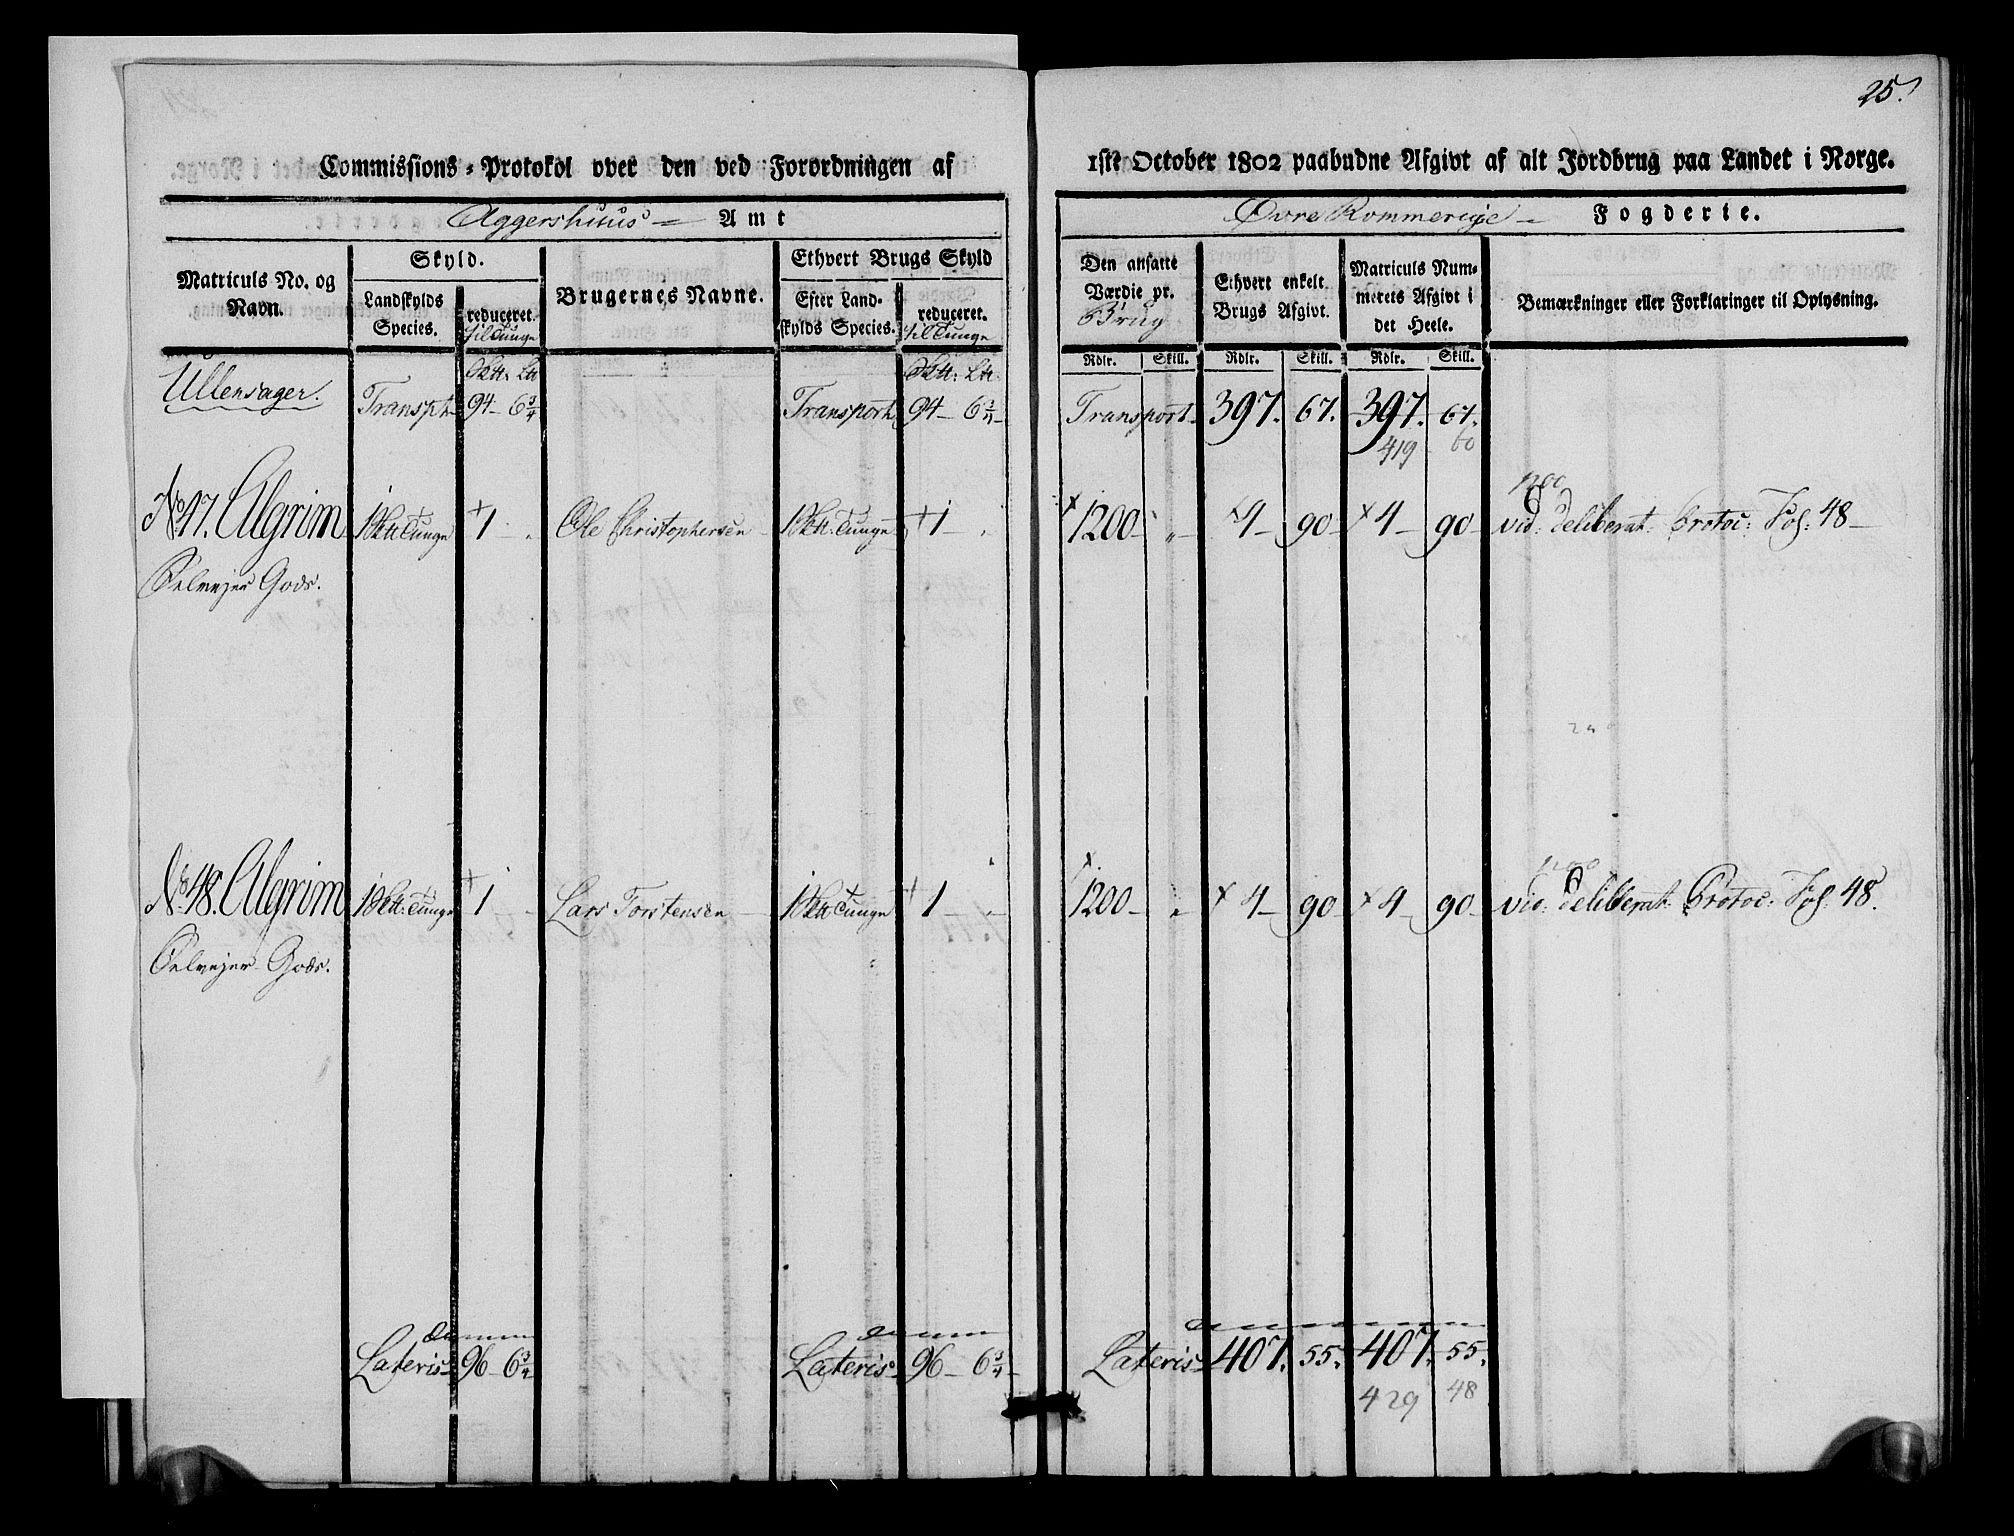 25.
Commissions-Protokol over den ved Forordningen af 1ste October 1802 paabudne Afgivt af alt Jordbrug paa Landet i Norge.
Aggershuus Amt
Øvre Rommerige Fogderie.
Matriculs No. og Navn.
Skyld.
Landskylds Species.
reduceret. til Tunge
Brugernes Navne.
Ethvert Brugs Skyld
Efter Landskylds Species.
reduceret. til Tunge
Den ansatte Værdie pr. Brug
Ethvert enkelt Brugs Afgivt.
Matriculs Nummerets Afgivt i det Heele.
Bemærkninger eller Forklaringer til Oplysning.
Rdlr. Skill. Rdlr. Skill. Rdlr. Skill.
Ullensager. Transpt 94 - 6 3/4 Transport 94 - 6 3/4 Transport 397. 67. 397. 67.
419 60
1200
No 17. Algrim 1 Sk℔ Tunge + 1 Ole Christophersen 1 Sk℔ Tunge + 1 × 1200 - " - × 4 - 90 × 4 - 90 - vid: deliberat: Protoc: Fol: 48 -
Selvejer Gods.
1200
No 18. Algrim 1 Sk℔: Tunge + 1 - Lars Torstensen 1 Sk℔ Tunge + 1 - × 1200 - " × 4 - 90 × 4 - 90 - vid: deliberat: Protoc: Fol: 48.
Selvejer Gods.
Lateris 96 - 6 3/4 Lateris 96 - 6 3/4 Lateris 407. 55. 407. 55.
429 48